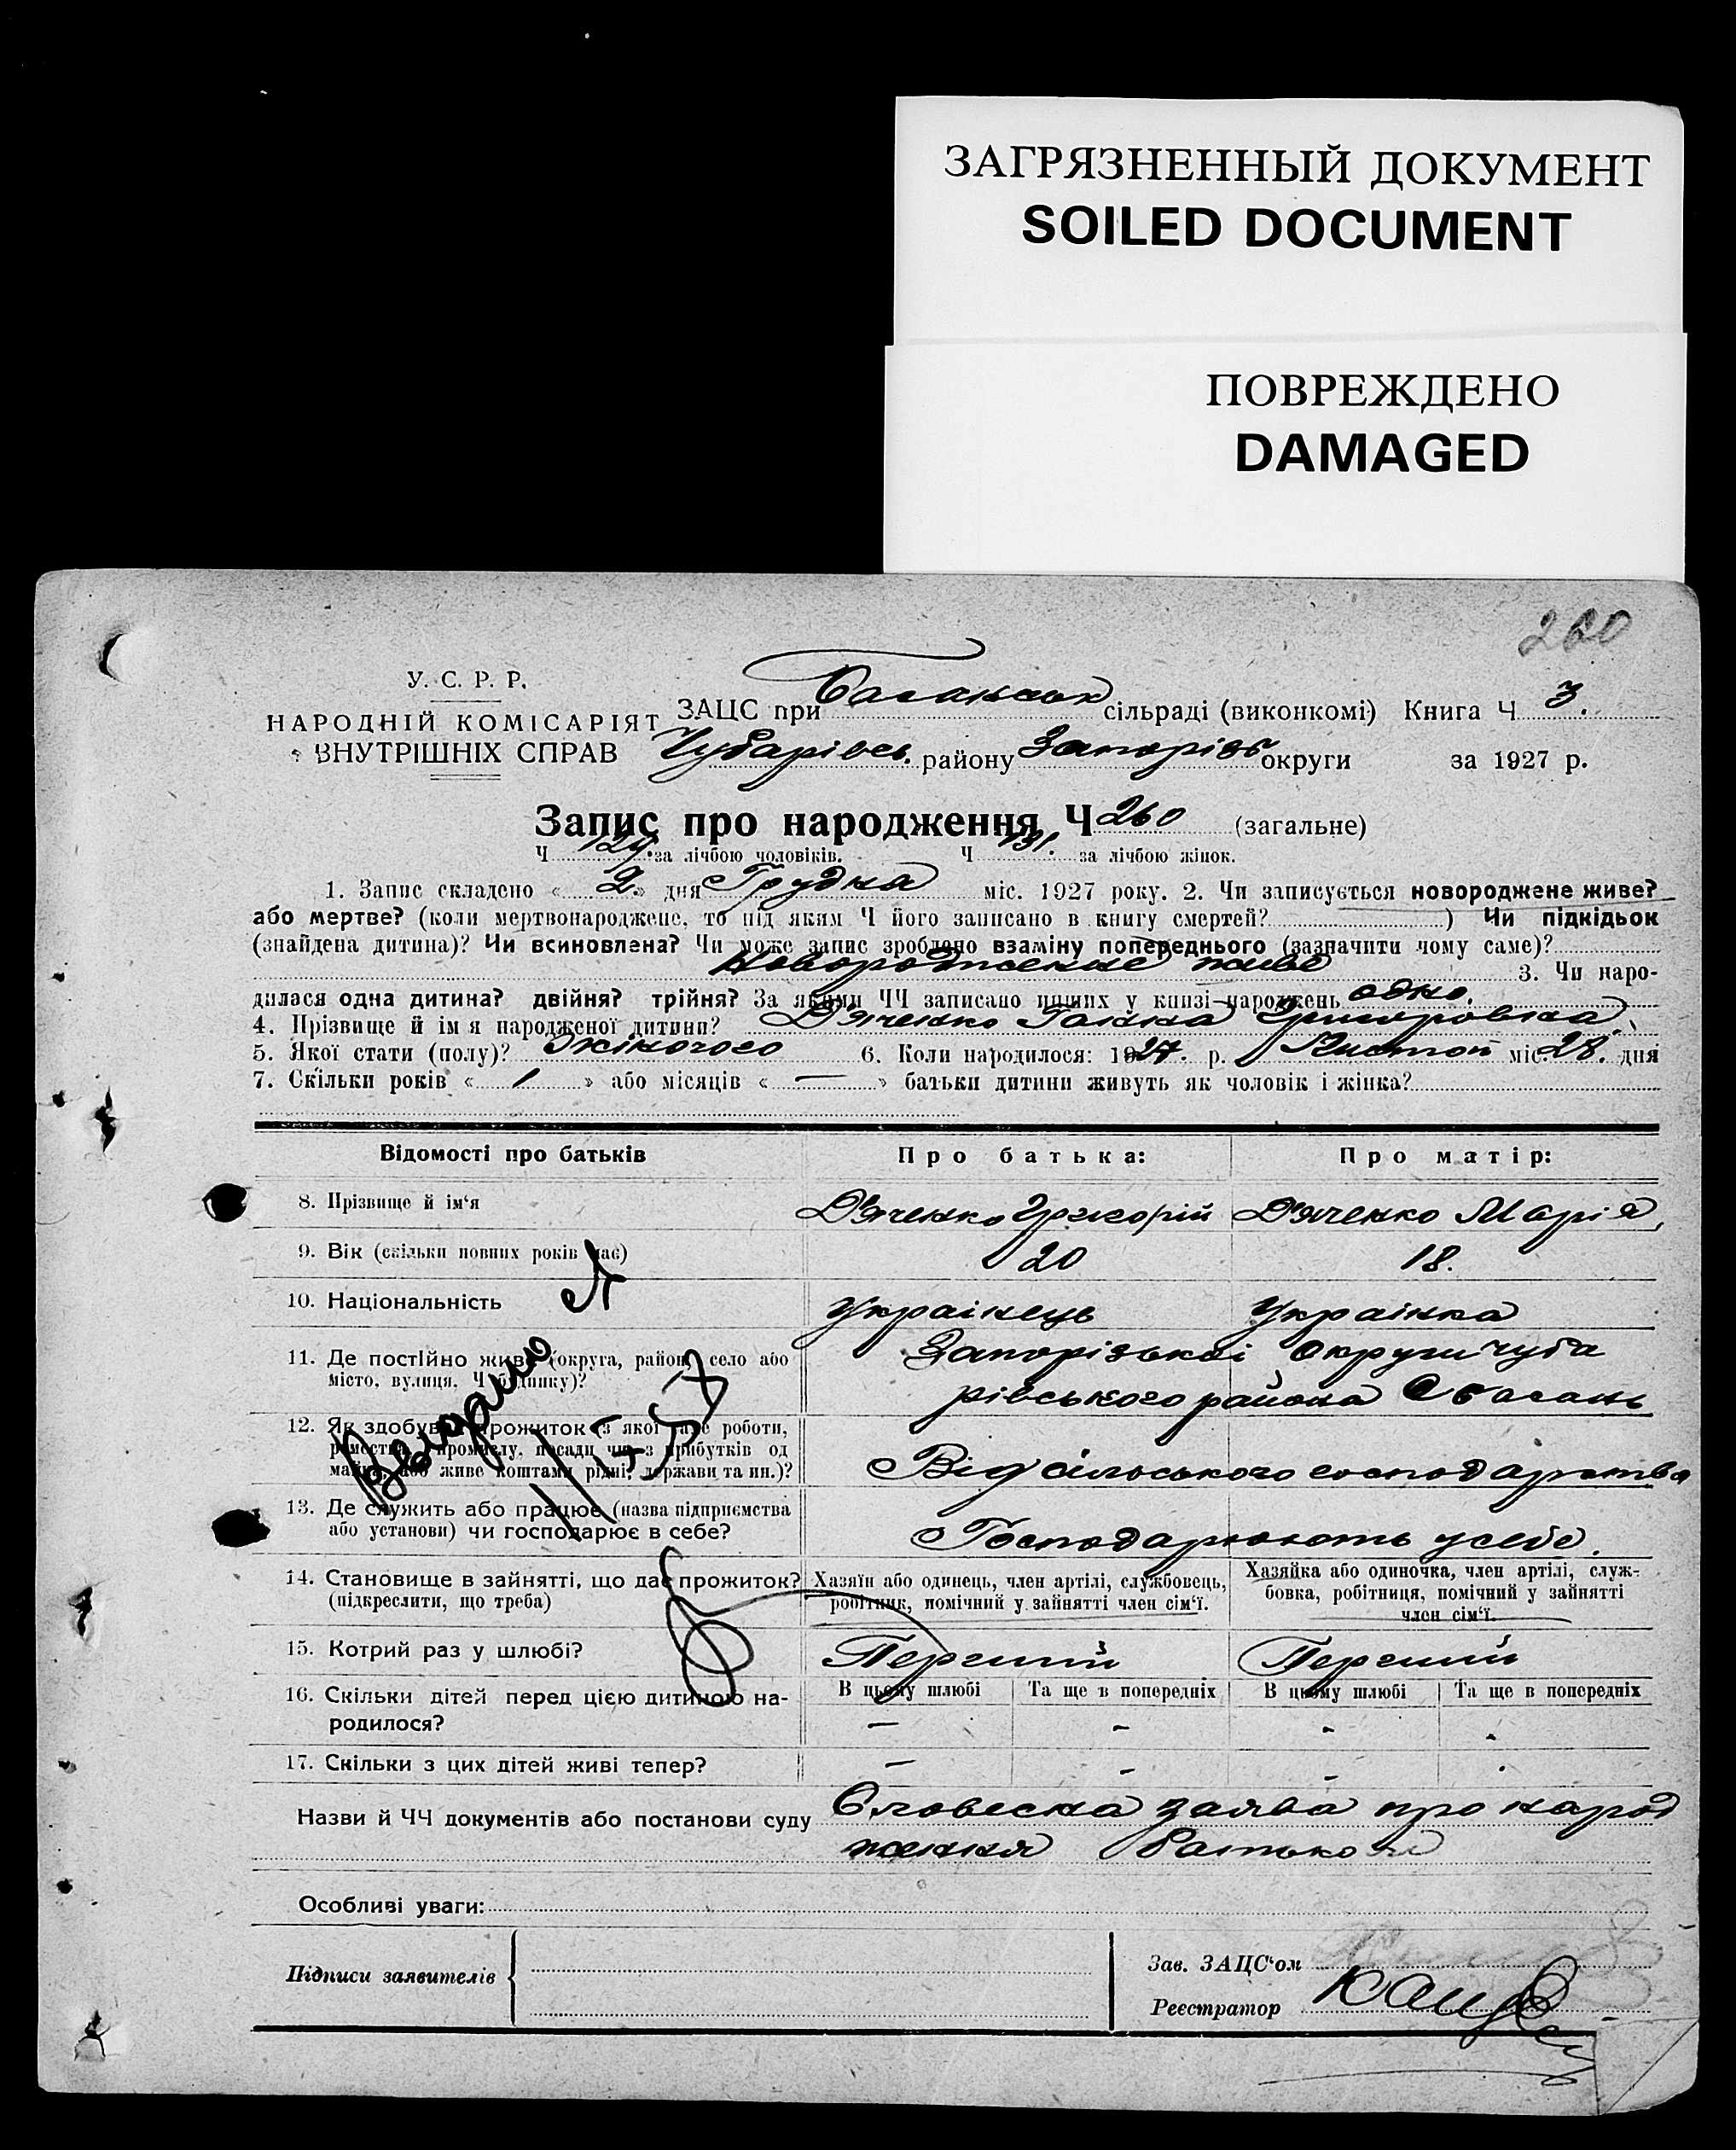 ЗАГРЯЗНЕННЫЙ ДОКУМЕНТ
SOILED DOCUMENT
ПОВРЕЖДЕНО
DAMAGED
260
У. С. Р. Р.
НАРОДНІЙ КОМІСАРІЯТ
ВНУТРІШНІХ СПРАВ
ЗАЦС при Баганськ сільраді (виконкомі) Книга Ч 3.
Чубарівсь. району Запорізь округи за 1927 р.
Запис про народження Ч 260 (загальне)
Ч 129. за лічбою чоловіків. Ч 131. за лічбою жінок.
1. Запис складено « 2 » дня Грудня міс. 1927 року. 2. Чи записується новороджене живе?
або мертве? (коли мертвонароджене, то під яким Ч його записано в книгу смертей? ) Чи підкідьок
(знайдена дитина)? Чи всиновлена? Чи може запис зроблено взаміну попереднього (зазначити чому саме)?
Новородженне живе 3. Чи наро-
дилася одна дитина? двійня? трійня? За якими ЧЧ записано инших у книзі народжень одно.
4. Прізвище й ім я народженої дитини? Д'яченко Ганна Григоровна
5. Якої стати (полу)? Жіночого 6. Коли народилося: 1927. р. Листоп міс. 28. дня
7. Скільки років « 1 » або місяців « — » батьки дитини живуть як чоловік і жінка?
Відомості про батьків Про батька: Про матір:
8. Прізвище й ім'я Д'яченко Григорій Д'яченко Марія
9. Вік (скільки повних років має) 20 18.
10. Національність Українець Українка
11. Де постійно живе (округа, район, село або Запорізької Округи Чуба
місто, вулиця, Ч будинку)? рівського района С Багань
12. Як здобуває прожиток (з якої саме роботи,
ремества, промислу, посади чи з прибутків од Від сільського господарства
майна, або живе коштами рідні, держави та ин.)?
13. Де служить або працює (назва підприємства
або установи) чи господарює в себе? Господарюють у себе.
14. Становище в зайнятті, що дає прожиток? Хазяїн або одинець, член артілі, службовець, Хазяйка або одиночка, член артілі, служ-
(підкреслити, що треба) робітник, помічний у зайнятті член сім'ї. бовка, робітниця, помічний у зайнятті
член сім'ї.
15. Котрий раз у шлюбі? Перший Перший
16. Скільки дітей перед цією дитиною на- В цьому шлюбі Та ще в попередніх В цьому шлюбі Та ще в попередніх
родилося? — - - -
17. Скільки з цих дітей живі тепер? — - - -
Видано
Назви й ЧЧ документів або постанови суду Словесна заява про народ
ження
Особливі уваги:
Підписи заявителів
Зав. ЗАЦС'ом
Реєстратор